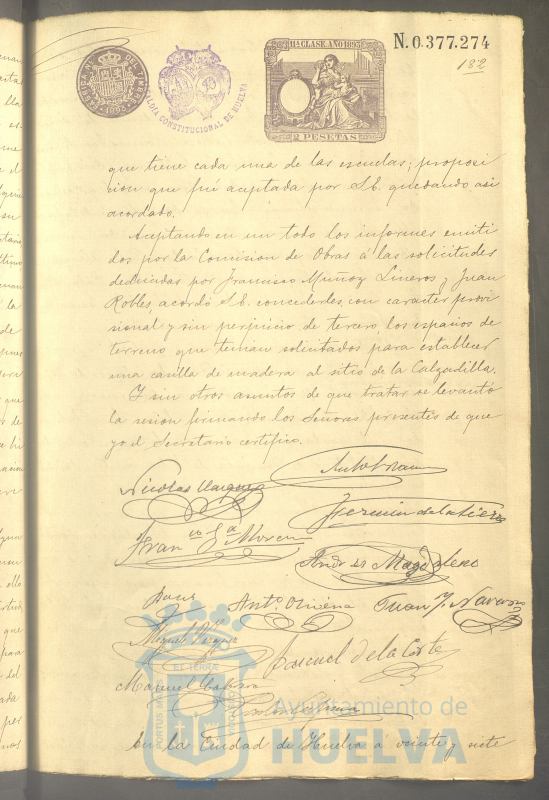 11ª CLASE. AÑO 1893
N. 0.377.274
182
ALCALDIA CONSTITUCIONAL DE HUELVA
2 PESETAS
que tiene cada una de las escuelas; proposi
cion que fué aceptada por S.E. quedando asi
acordado.
Aceptando en un todo los informes emiti
dos por la Comision de Obras á las solicitudes
dedicadas por Francisco Muñoz Lineros y Juan
Robles, acordó S.E. concederles, con caracter provi
sional y sin perjuicio de tercero, los espacios de
terreno que tenian solicitados para establecer
una casilla de madera al sitio de la Calzadilla.
Y sin otros asuntos de que tratar se levantó
la sesion firmando los Señores presentes de que
yo el Secretario certifico.
Nicolas Vazquez
Fermin de la Sierra
Fran.co Ga Moreno
Andres Magdaleno
Anto. Oliveira
Juan J. Navarro
Miguel Vazquez
Manuel de la Corte
Manuel
PORTUS MARIS ET TERRAE
Ayuntamiento de
HUELVA
En la Ciudad de Huelva a veinte y siete